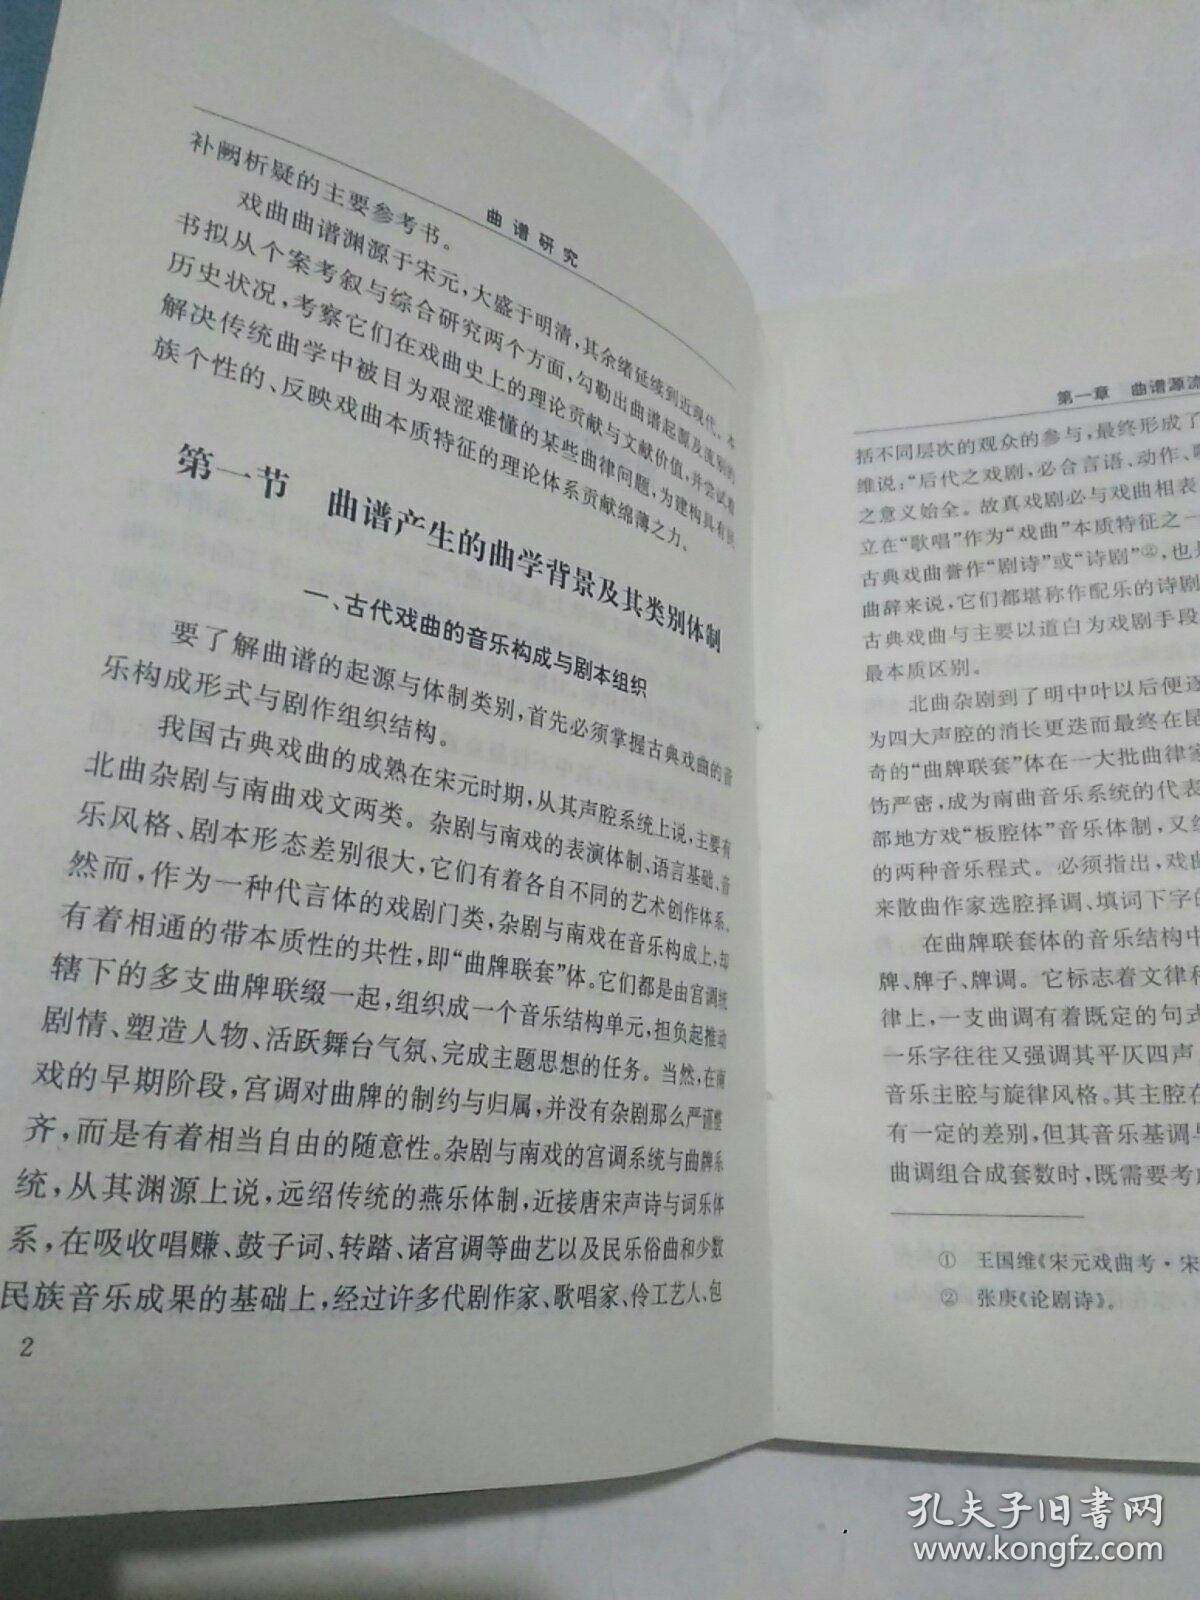 曲谱研究
补阙析疑的主要参考书。
戏曲曲谱渊源于宋元，大盛于明清，其余绪延续到近现代。本
书拟从个案考叙与综合研究两个方面，勾勒出曲谱起源及流别的
历史状况，考察它们在戏曲史上的理论贡献与文献价值，并尝试着
解决传统曲学中被目为艰涩难懂的某些曲律问题，为建构具有民
族个性的、反映戏曲本质特征的理论体系贡献绵薄之力。
第一节 曲谱产生的曲学背景及其类别体制
一、古代戏曲的音乐构成与剧本组织
要了解曲谱的起源与体制类别，首先必须掌握古典戏曲的音
乐构成形式与剧作组织结构。
我国古典戏曲的成熟在宋元时期，从其声腔系统上说，主要有
北曲杂剧与南曲戏文两类。杂剧与南戏的表演体制、语言基础、音
乐风格、剧本形态差别很大，它们有着各自不同的艺术创作体系。
然而，作为一种代言体的戏剧门类，杂剧与南戏在音乐构成上，却
有着相通的带本质性的共性，即“曲牌联套”体。它们都是由宫调统
辖下的多支曲牌联缀一起，组织成一个音乐结构单元，担负起推动
剧情、塑造人物、活跃舞台气氛、完成主题思想的任务。当然，在南
戏的早期阶段，宫调对曲牌的制约与归属，并没有杂剧那么严谨整
齐，而是有着相当自由的随意性。杂剧与南戏的宫调系统与曲牌系
统，从其渊源上说，远绍传统的燕乐体制，近接唐宋声诗与词乐体
系，在吸收唱赚、鼓子词、转踏、诸宫调等曲艺以及民乐俗曲和少数
民族音乐成果的基础上，经过许多代剧作家、歌唱家、伶工艺人、包
2
第一章 曲谱源流
括不同层次的观众的参与，最终形成了
维说：“后代之戏剧，必合言语、动作、
之意义始全。故真戏剧必与戏曲相表
立在“歌唱”作为“戏曲”本质特征之一
古典戏曲誉作“剧诗”或“诗剧”②，也
曲辞来说，它们都堪称作配乐的诗剧
古典戏曲与主要以道白为戏剧手段
最本质区别。
北曲杂剧到了明中叶以后便逐
为四大声腔的消长更迭而最终在昆
奇的“曲牌联套”体在一大批曲律家
饬严密，成为南曲音乐系统的代表
部地方戏“板腔体”音乐体制，又
的两种音乐程式。必须指出，戏曲
来散曲作家选腔择调、填词下字的
在曲牌联套体的音乐结构中
牌、牌子、牌调。它标志着文律和
律上，一支曲调有着既定的句式
一乐字往往又强调其平仄四声
音乐主腔与旋律风格。其主腔在
有一定的差别，但其音乐基调与
曲调组合成套数时，既需要考虑
① 王国维《宋元戏曲考·宋
② 张庚《论剧诗》。
孔夫子旧书网
www.kongfz.com